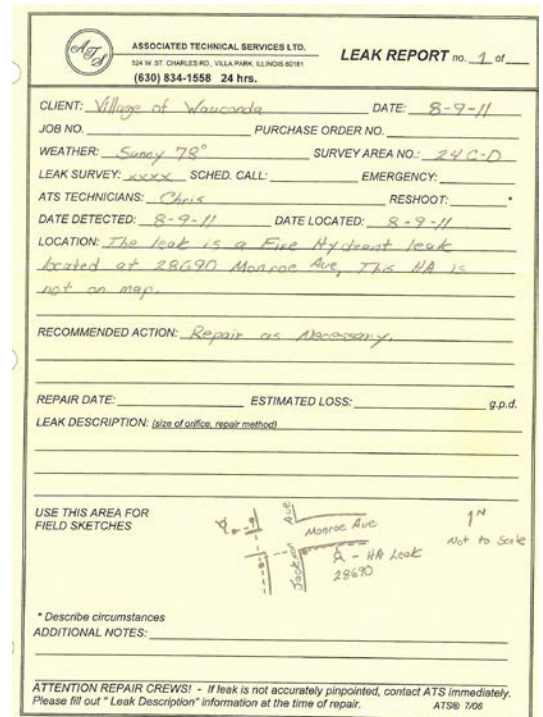 ATS
ASSOCIATED TECHNICAL SERVICES LTD.
524 W. ST. CHARLES RD., VILLA PARK, ILLINOIS 60181
(630) 834-1558 24 hrs.
LEAK REPORT no. 1 of
CLIENT: Village of Wauconda DATE: 8-9-11
JOB NO. PURCHASE ORDER NO.
WEATHER: Sunny 78° SURVEY AREA NO.: 24 C-D
LEAK SURVEY: xxxx SCHED. CALL: EMERGENCY:
ATS TECHNICIANS: Chris RESHOOT: *
DATE DETECTED: 8-9-11 DATE LOCATED: 8-9-11
LOCATION: The leak is a Fire Hydrant leak
located at 28690 Monroe Ave, This HA is
not on map.
RECOMMENDED ACTION: Repair as Necessary.
REPAIR DATE: ESTIMATED LOSS: g.p.d.
LEAK DESCRIPTION: (size of orifice, repair method)
USE THIS AREA FOR
FIELD SKETCHES
Ave
Monroe Ave
N
Not to Scale
Jackson
- HA Leak
28690
* Describe circumstances
ADDITIONAL NOTES:
ATTENTION REPAIR CREWS! - If leak is not accurately pinpointed, contact ATS immediately.
Please fill out " Leak Description" information at the time of repair. ATS® 7/06